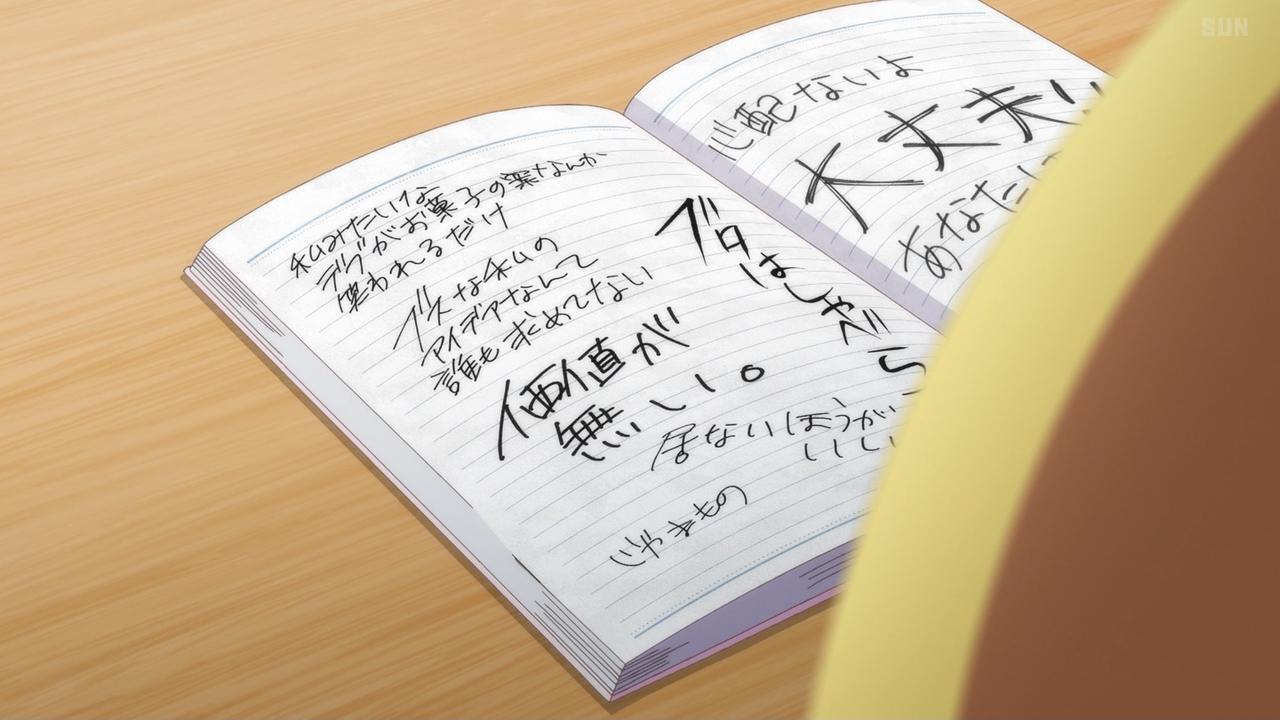 私みたいな
デブがお菓子の案なんか
笑われるだけ
ブスな私の
アイデアなんて
誰も求めてない
価値が
無い。
ブタ
はしゃべ
ら
居ないほうが
いい
じゃまもの
心配ないよ
大丈夫
あなた
SUN